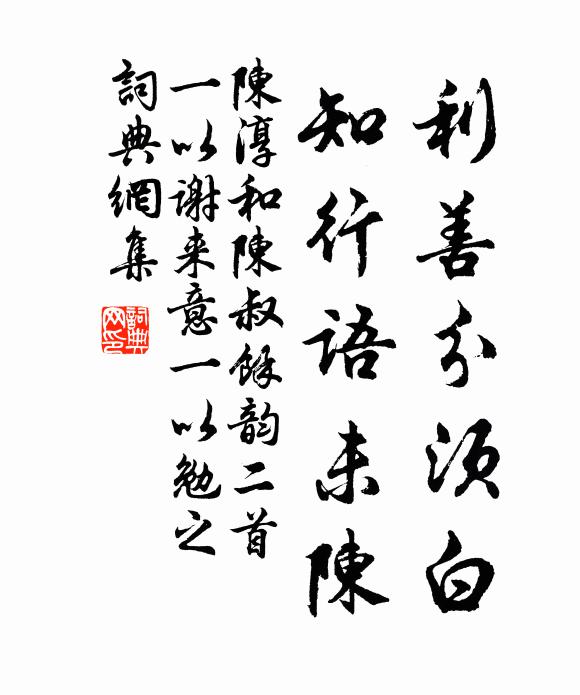 利善分须白
知行語未陳
陳淳和陳叔餘韵二首
一以谢来意一以勉之
詞典網集
詞典
网印